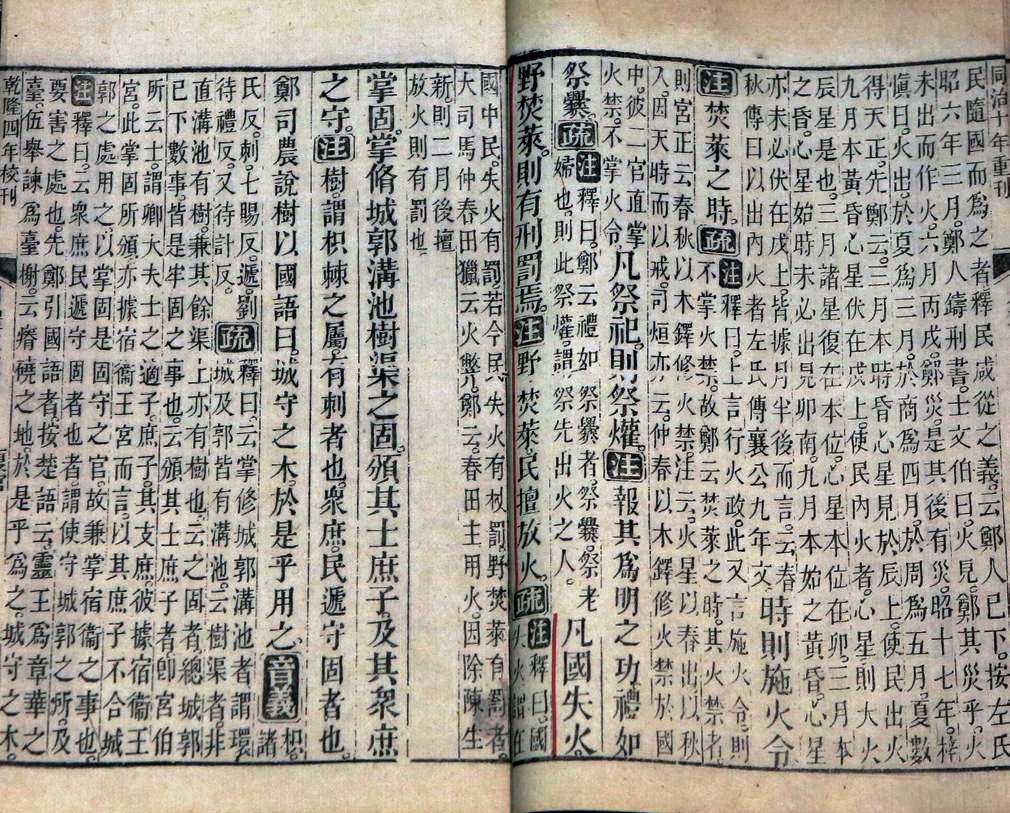 同治十年重刊
民隨國而為之者釋民咸從之義云鄭人已下按左氏
昭六年三月鄭人鑄刑書士文伯曰火見鄭其災乎火
未出而作火六月丙戌鄭災是其後有災昭十七年梓
慎曰火出於夏為三月於商為四月於周為五月夏數
得天正先鄭云三月本時昏心星見於辰上使民出火
九月本黃昏心星伏在戌上使民內火者心星則大火
辰星是也三月諸星復在本位心星本位在卯三月本
之昏心星始時未必出見卯南九月本始之黃昏心星
亦未必伏在戌上皆據月半後而言云春
秋傳曰以出內火者左氏傳襄公九年文
時則施火令
注焚萊之時疏
注釋曰上言行火政此又言施火令則
不掌火禁故鄭云焚萊之時其火禁者
則宮正云春秋以木鐸修火禁注云火星以春出以秋
入因天時而以戒司烜亦云仲春以木鐸修火禁於國
中彼二官直掌
火禁不掌火令
凡祭祀則祭爟注報其為明之功禮如
祭爨疏
注釋曰鄭云禮如祭爨者祭爨祭老
婦也則此祭爟謂祭先出火之人
凡國失火
野焚萊則有刑罰焉注野焚萊民擅放火疏
注釋曰國
失火謂在
國中民失火有罰若今民失火有杖罰野焚萊有罰者
大司馬仲春田獵云火獘鄭云春田主用火因除陳生
新則二月後擅
放火則有罰也
掌固掌脩城郭溝池樹渠之固頒其士庶子及其衆庶
之守注樹謂枳棘之屬有刺者也衆庶民遞守固者也
鄭司農說樹以國語曰城守之木於是乎用之音義
枳
諸
氏反刺七賜反遞劉
待禮反又待計反
疏
釋曰云掌修城郭溝池者謂環
城及郭皆有溝池云樹渠者非
直溝池有樹兼其餘渠上亦有樹也云之固者總城郭
已下數事皆是牢固之事也云頒其士庶子者卽宮伯
所云士謂卿大夫士之適子庶子其支庶彼據宿衞王
宮此掌固所頒亦據宿衞王宮而言以其庶子不合城
郭之處用之以掌固是固守之官故兼掌宿衞之事也
注釋曰云衆庶民遞守固者也謂使守城郭之所及
要害之處也先鄭引國語者按楚語云靈王為章華之
臺伍舉諫為臺榭云瘠磽之地於是乎為之城守之木
乾隆四年校刊